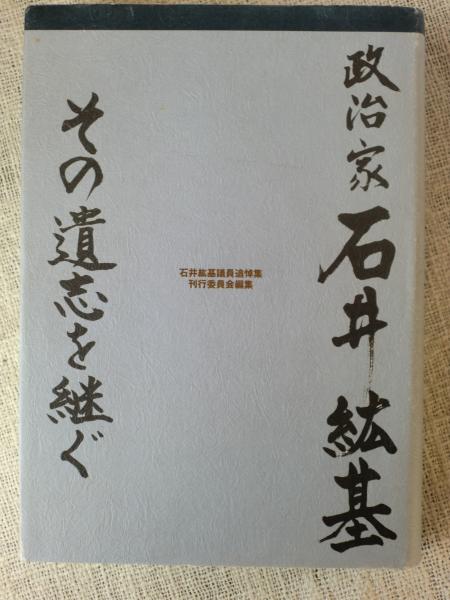 政治家 石井紘基
その遺志を継ぐ
石井紘基議員追悼集
刊行委員会編集